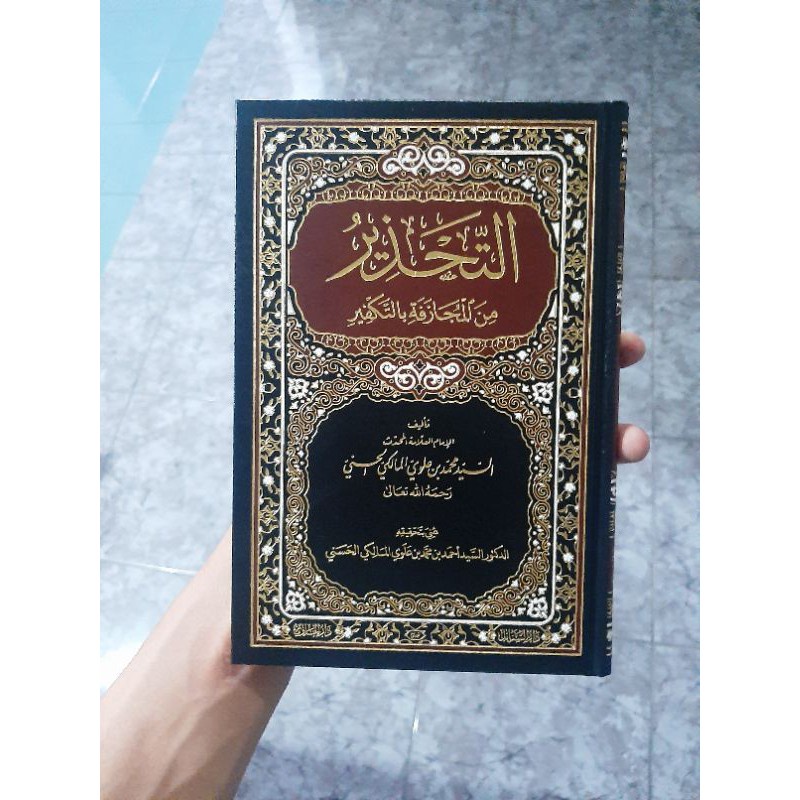 التَّحْذِيرُ
مِنَ الْمُجَازَفَةِ بِالتَّكْفِيرِ
تأليف
الإمام العلامة المحدث
السيد محمد بن علوي المالكي الحسني
رحمه الله تعالى
عني بتحقيقه
الدكتور السيد أحمد بن محمد بن علوي المالكي الحسني